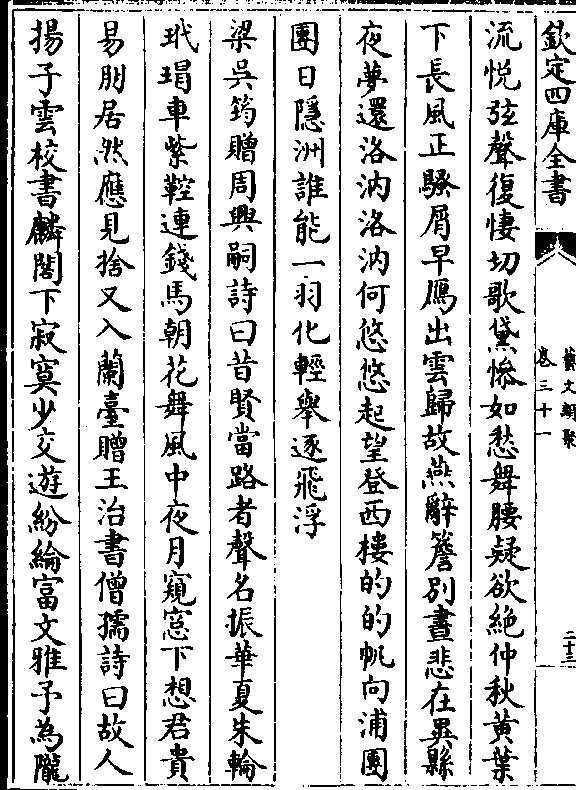 欽定四庫全書
藝文類聚
卷三十一
二十三
流悦弦聲復悽切歌黛慘如愁舞腰疑欲絶仲秋黄葉
下長風正騷屑早鴈出雲歸故燕辭簷别晝悲在異縣
夜夢還洛汭洛汭何悠悠起望登西樓的的帆向浦團
團日隱洲誰能一羽化輕舉逐飛浮
梁吳筠贈周興嗣詩曰昔賢當路者聲名振華夏朱輪
玳瑁車紫鞚連錢馬朝花舞風中夜月窺窓下想君貴
易朋居然應見捨又入蘭臺贈王治書僧孺詩曰故人
揚子雲校書麟閣下寂寞少交遊紛綸富文雅予為隴